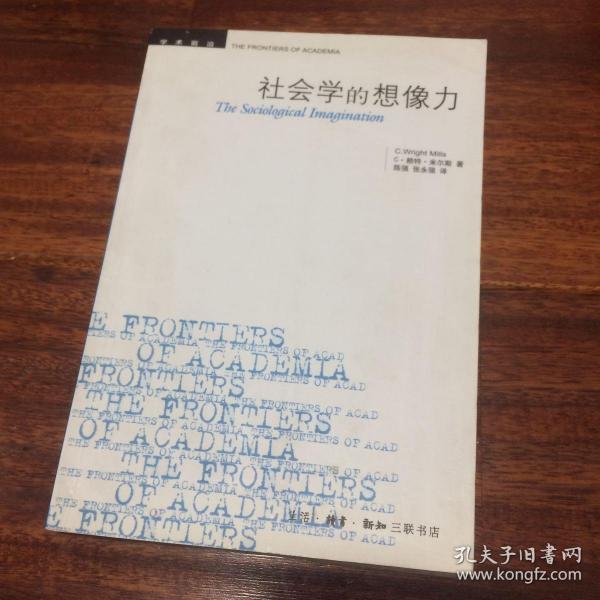 学术前沿 THE FRONTIERS OF ACADEMIA
社会学的想像力
The Sociological Imagination
C.Wright Mills
C·赖特·米尔斯 著
陈强 张永强 译
E FRONTIERS
TIERS OF ACADEMIA THE FRONTIERS OF ACAD
OF ACADEMIA
FRONTIERS
THE FRONTIERS OF ACAD
THE FRONTIERS
OF ACADEMIA
THE FRONTIERS OF ACADEMIA THE FRONTIERS OF ACAD
THE FRONTIERS
OF ACADEMIA
E FRONTIERS
生活·读书·新知三联书店
孔夫子旧書网
www.kongfz.com